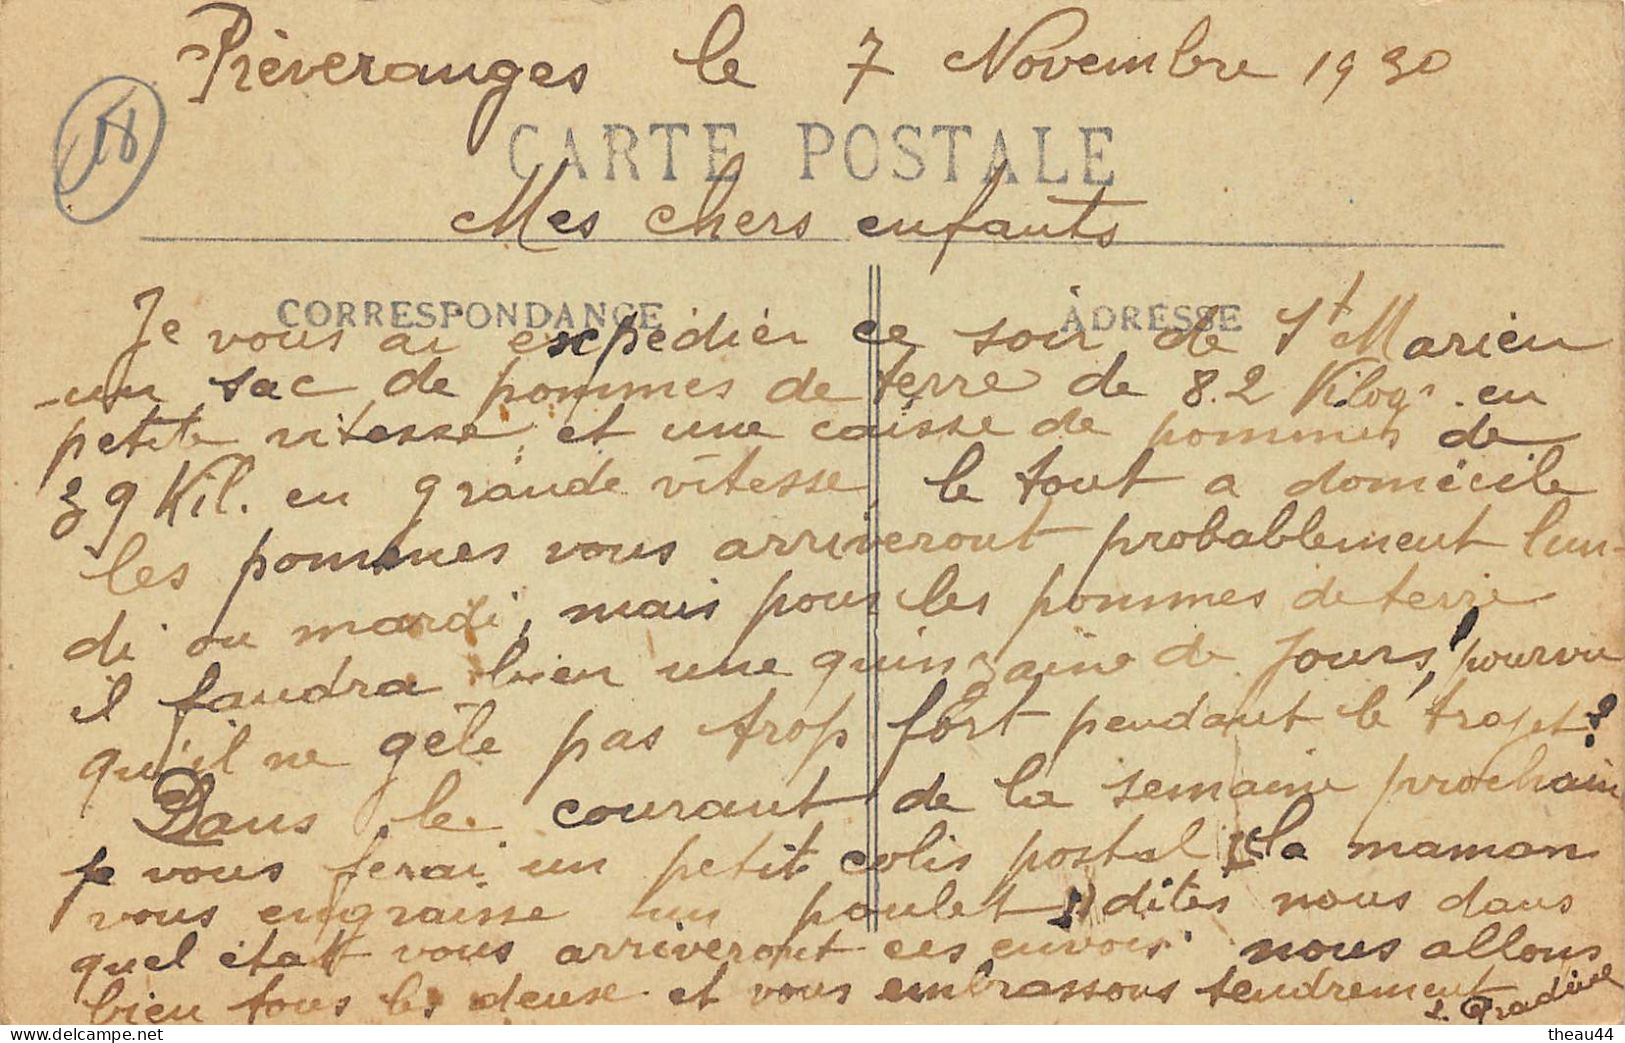 Préveranges le 7 Novembre 1930
18
CARTE POSTALE
Mes chers enfants
CORRESPONDANCE
ADRESSE
Je vous ai expédiér ce soir de St Marien
un sac de pommes de terre de 82 Kilogs en
petite vitesse, et une caisse de pommes de
39 Kil. en grande vitesse, le tout a domicile
les pommes vous arriveront probablement lun-
di ou mardi, mais pour les pommes de terre
il faudra bien une quinzaine de jours, pourvu
qu'il ne gèle pas trop fort pendant le trajet?
Dans le courant de la semaine prochain
je vous ferai un petit colis postal la maman
vous engraisse un poulet dites nous dans
quel état vous arriveront ces envois nous allons
bien tous les deux et vous embrassons tendrement
delcampe.net
theau44